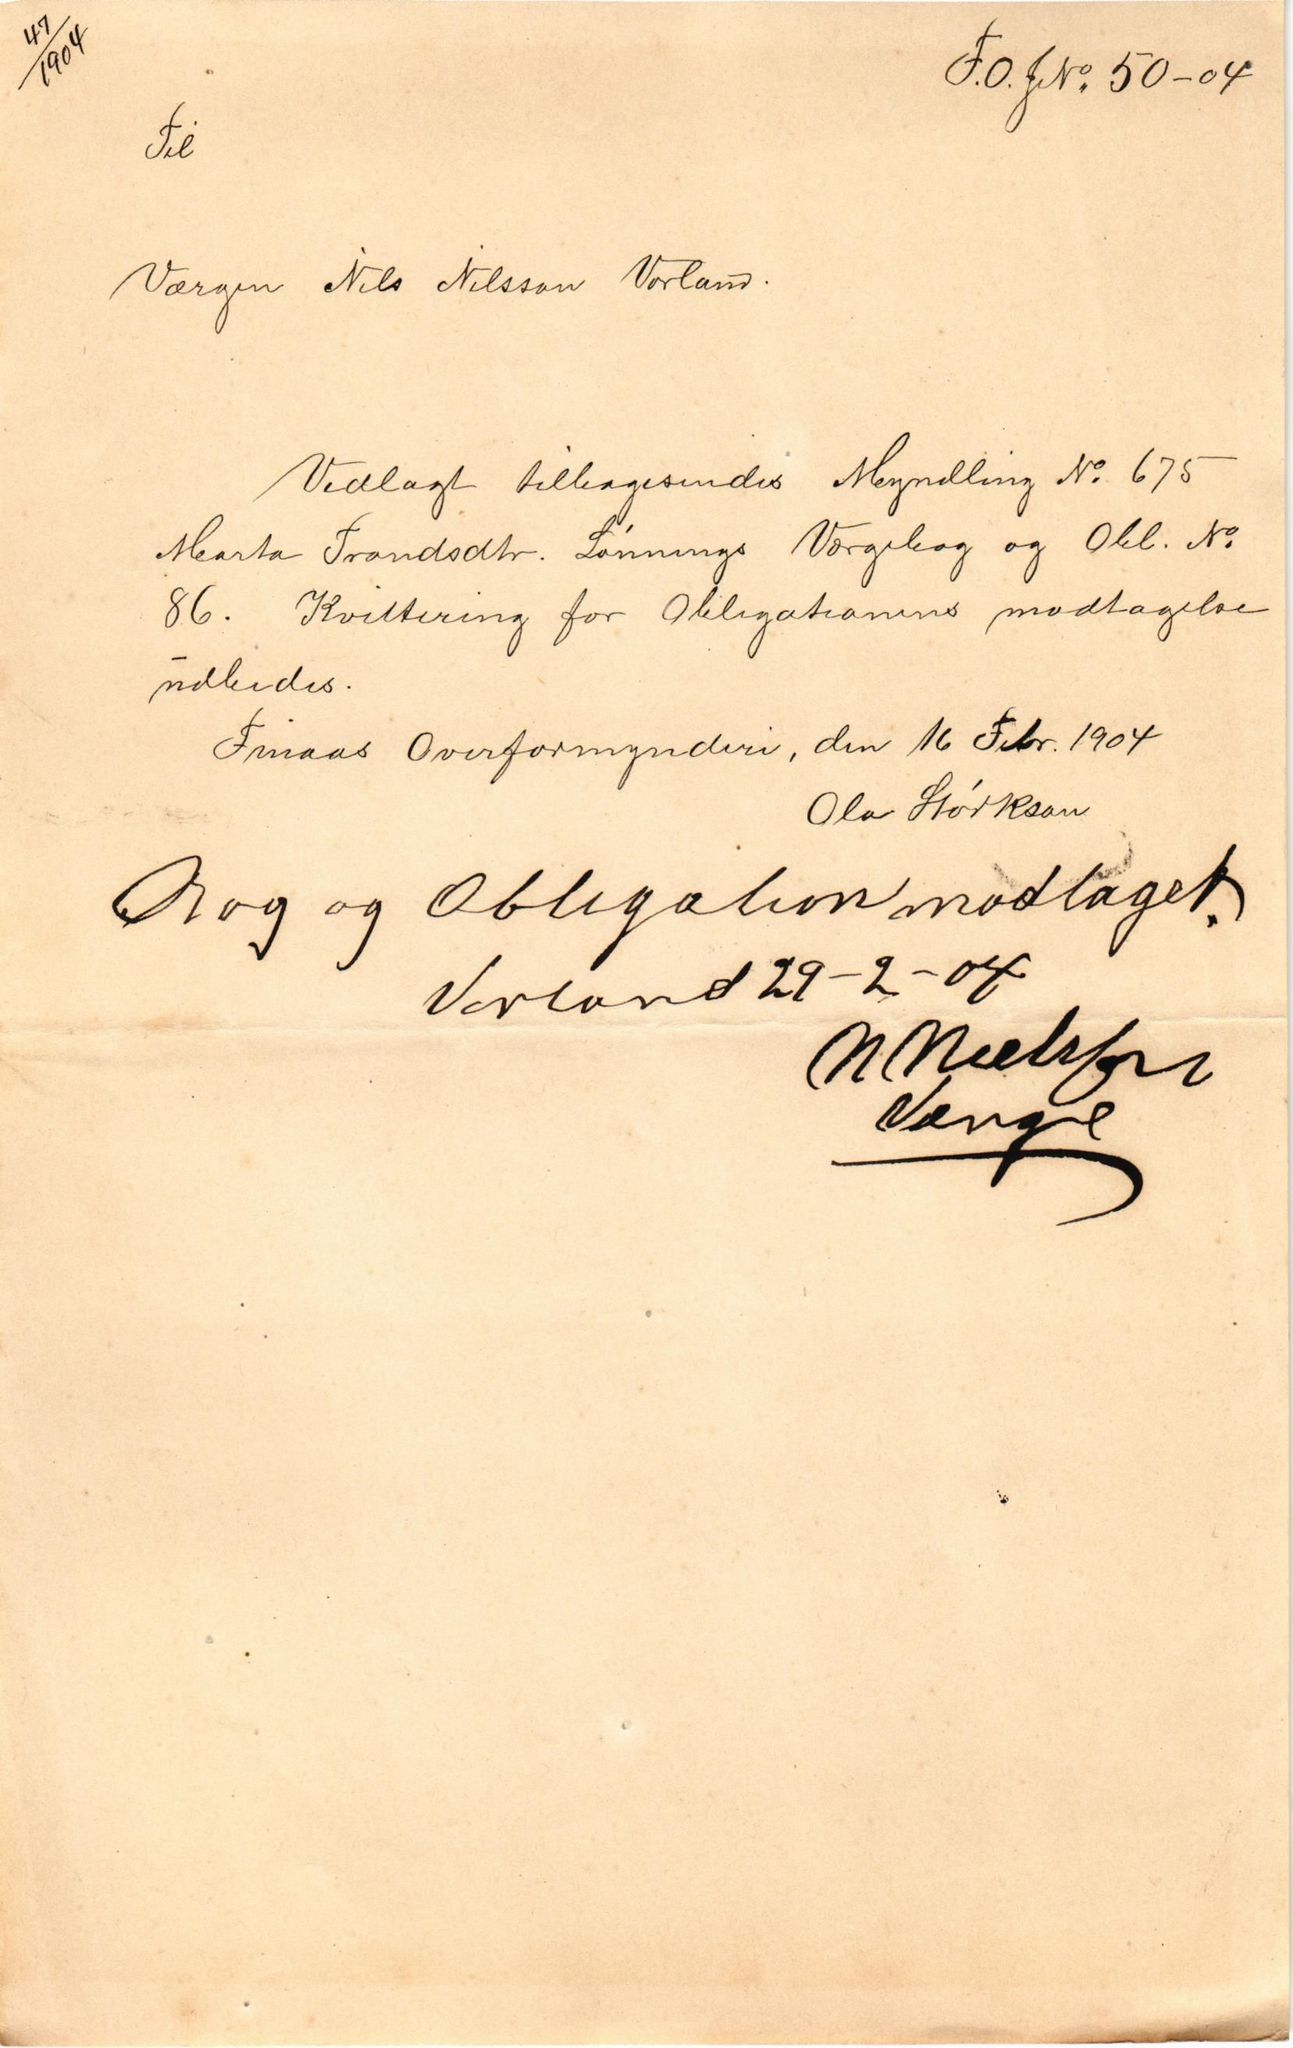 47/1904
F.O. J.No. 50-04
Til
Værgen Nils Nilsson Vorland.
Vedlagt tilbagesendes Myndling No. 675
Marta Trondsdtr. Lønnings Værgebog og Obl. No.
86. Kvittering for Obligationens modtagelse
udbedes.
Finaas Overformynderi, den 16 Febr. 1904
Ola Størkson
Bog og Obligation modtaget.
Vorland 29-2-04
N Nielssen
Værge